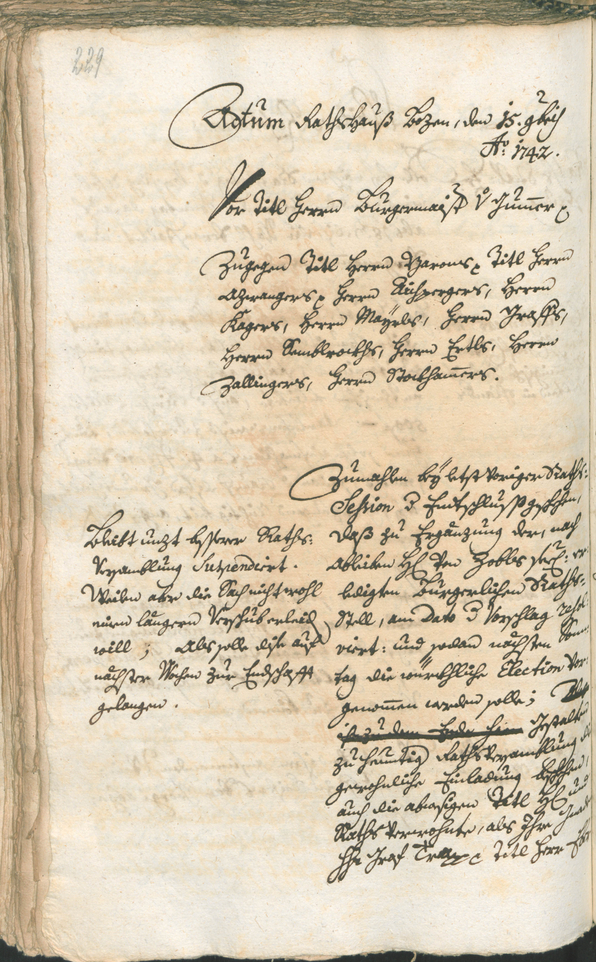 229
Actum Rathshauß Bozen, den 15. 9bris
Aō. 1742.
Vor Titl Herrn Burgermaistr v Gumer p
Zugegen Titl Herrn Titl Herrn
Azwangers p Herrn Herrn
Kagers, Herrn Mayrls, Herrn Graffs,
Herrn Herrn Ertls, Herrn
Zallingers, Herrn Stockhamers.
Bleibt unzt össerer Raths:
Versamblung Suspendiert.
Weilen aber die Sach nicht wohl
einen längern Verschub erleid
will; Als solle dise auf
nächster Wochen zur Endschafft
gelangen.
Zumahlen bey letst voriger Raths:
Session d Entschluss geschehen,
daß zu Ergänzung der, nach
Ableiben Hl Von Zobls sel: er
ledigten Burgerlichen Raths:
Stell, am Dato d Vorschlag resol
viert: und sodan nächsten
tag die würkhliche Election vor
genomen werden solle;
Gestalten
zu heuntig Raths Versamblung
gewohnliche Einladung beschehen,
auch die abwesigen Titl Hl und
Raths Verwohnte, als Ihro
Graf Trapp p Titl Herr